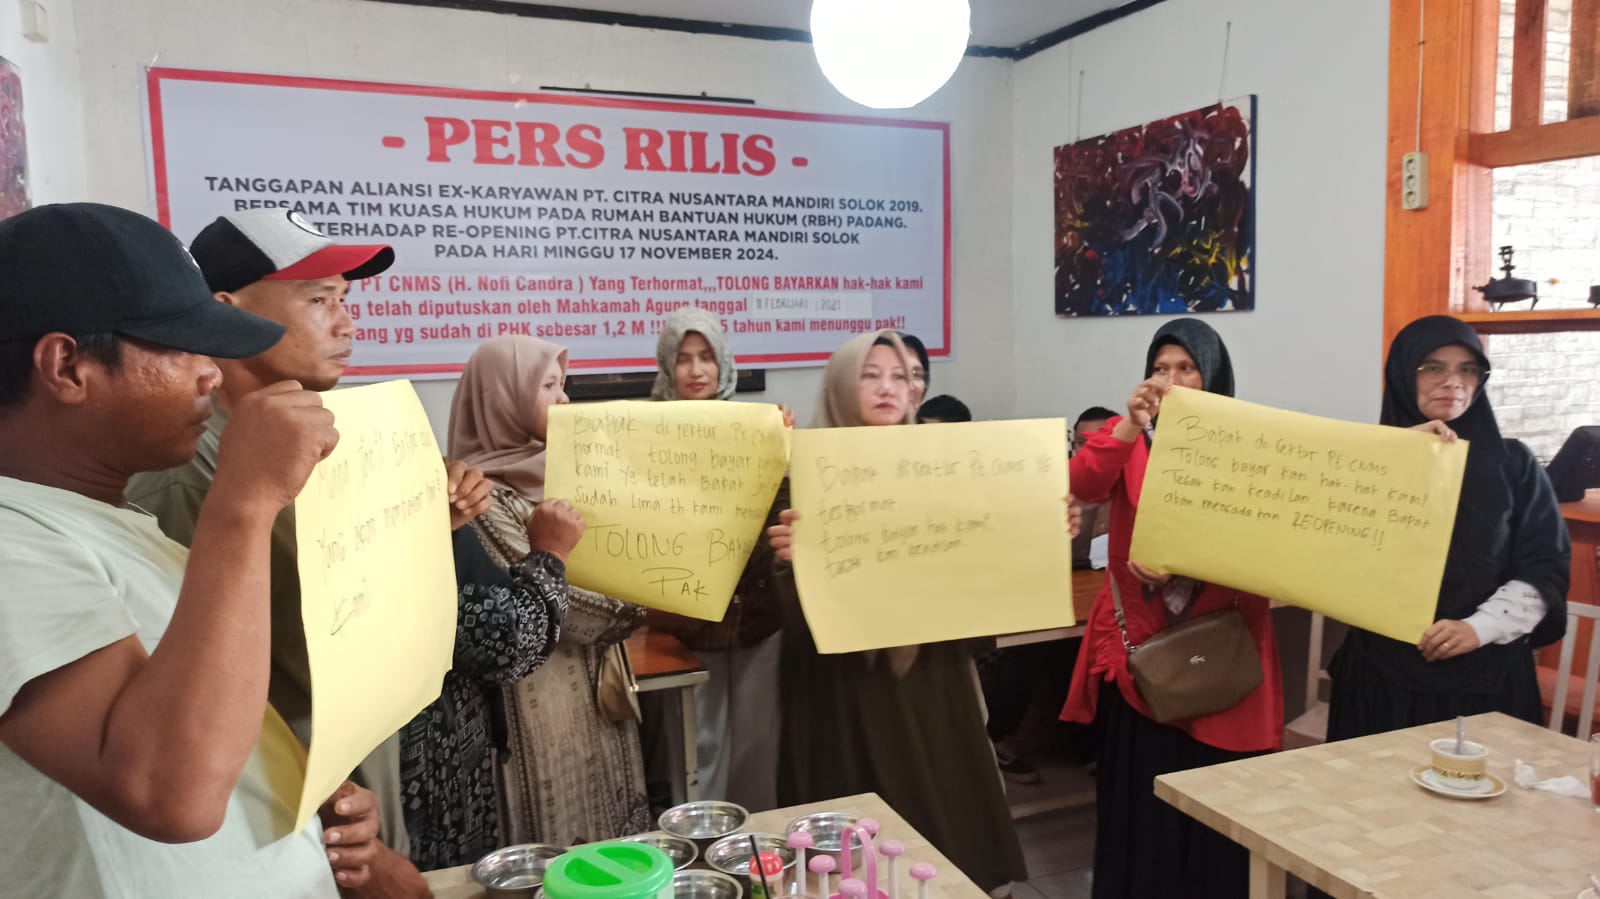 - PERS RILIS -
TANGGAPAN ALIANSI EX-KARYAWAN PT. CITRA NUSANTARA MANDIRI SOLOK 2019.
BERSAMA TIM KUASA HUKUM PADA RUMAH BANTUAN HUKUM (RBH) PADANG.
TERHADAP RE-OPENING PT.CITRA NUSANTARA MANDIRI SOLOK
PADA HARI MINGGU 17 NOVEMBER 2024.
PT CNMS (H. Nofi Candra ) Yang Terhormat,,,TOLONG BAYARKAN hak-hak kami
telah diputuskan oleh Mahkamah Agung tanggal 11 FEBRUARI 2021
yg sudah di PHK sebesar 1,2 M !!! 5 tahun kami menunggu pak!!
Mana janji
Yang akan
Kami
Bapak direktur Pt CNMS
hormat tolong bayar
kami yg telah Bapak
Sudah Lima th kami
TOLONG BAYAR
PAK
Bapak direktur Pt CNMS yg
terhormat
tolong bayar hak kami
Bapak direktur Pt CNMS
Tolong bayar kan hak-hak kami!
Tegak kan keadilan karena Bapak
akan mengada kan REOPENING!!